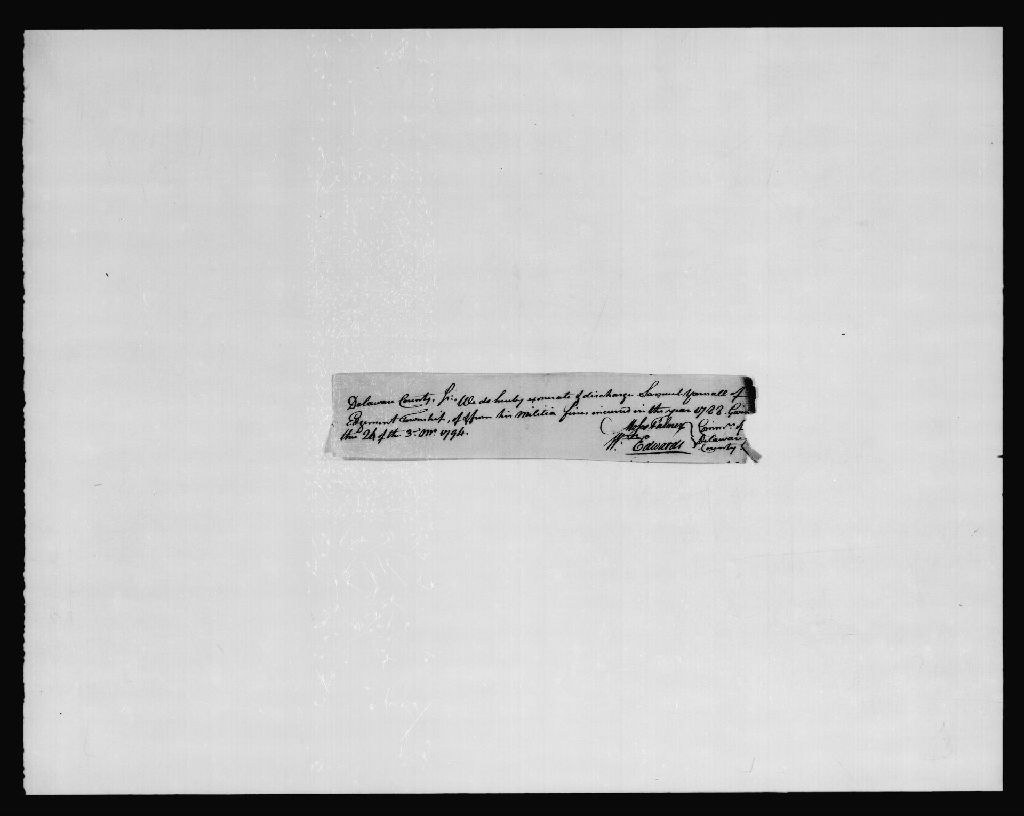 Delaware County, Ss. We do hereby exonerate & discharge Samuel Yarnall of
Edgemont Township, of & from his Militia fines incurred in the year 1788. Given
this 24 of the 3d. Mo. 1794.
Moses Palmer
Wm. Edwards
Commrs. of
Delaware
County